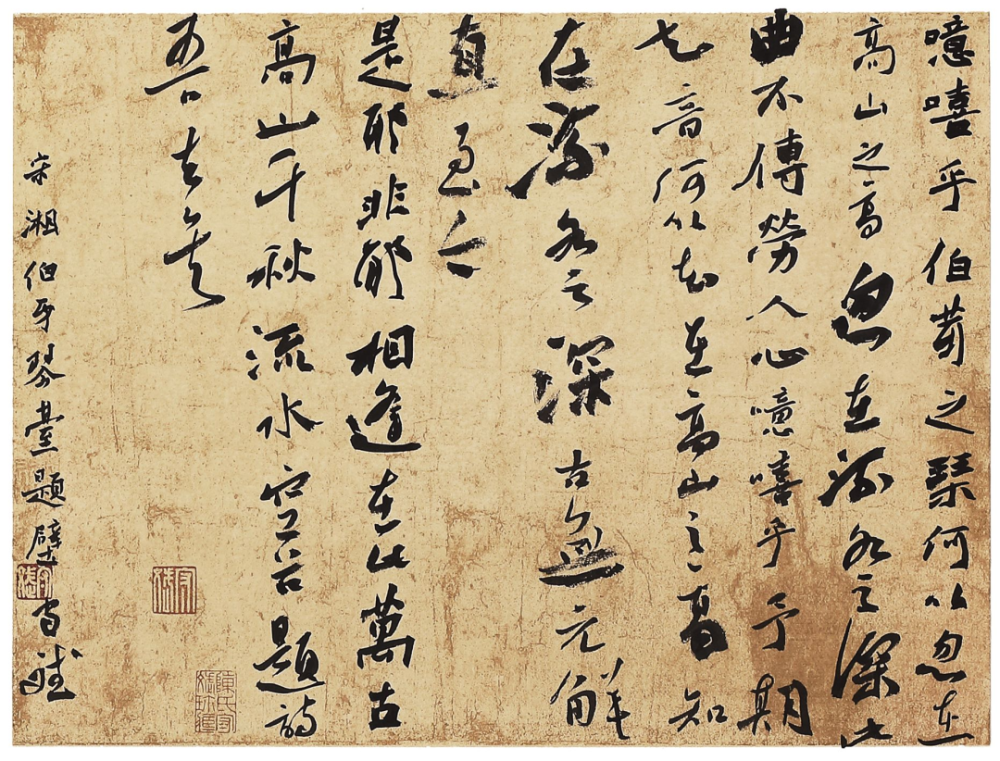 噫嘻乎伯牙之琴何以忽在
高山之高忽在流水之深此
曲不傳勞人心噫嘻乎子期
之音何以知在高山之高知
在流水之深古無元解
直至今
是耶非耶相逢在此萬古
高山千秋流水空題詩
吾去矣
宋湘伯牙琴臺題壁守斌